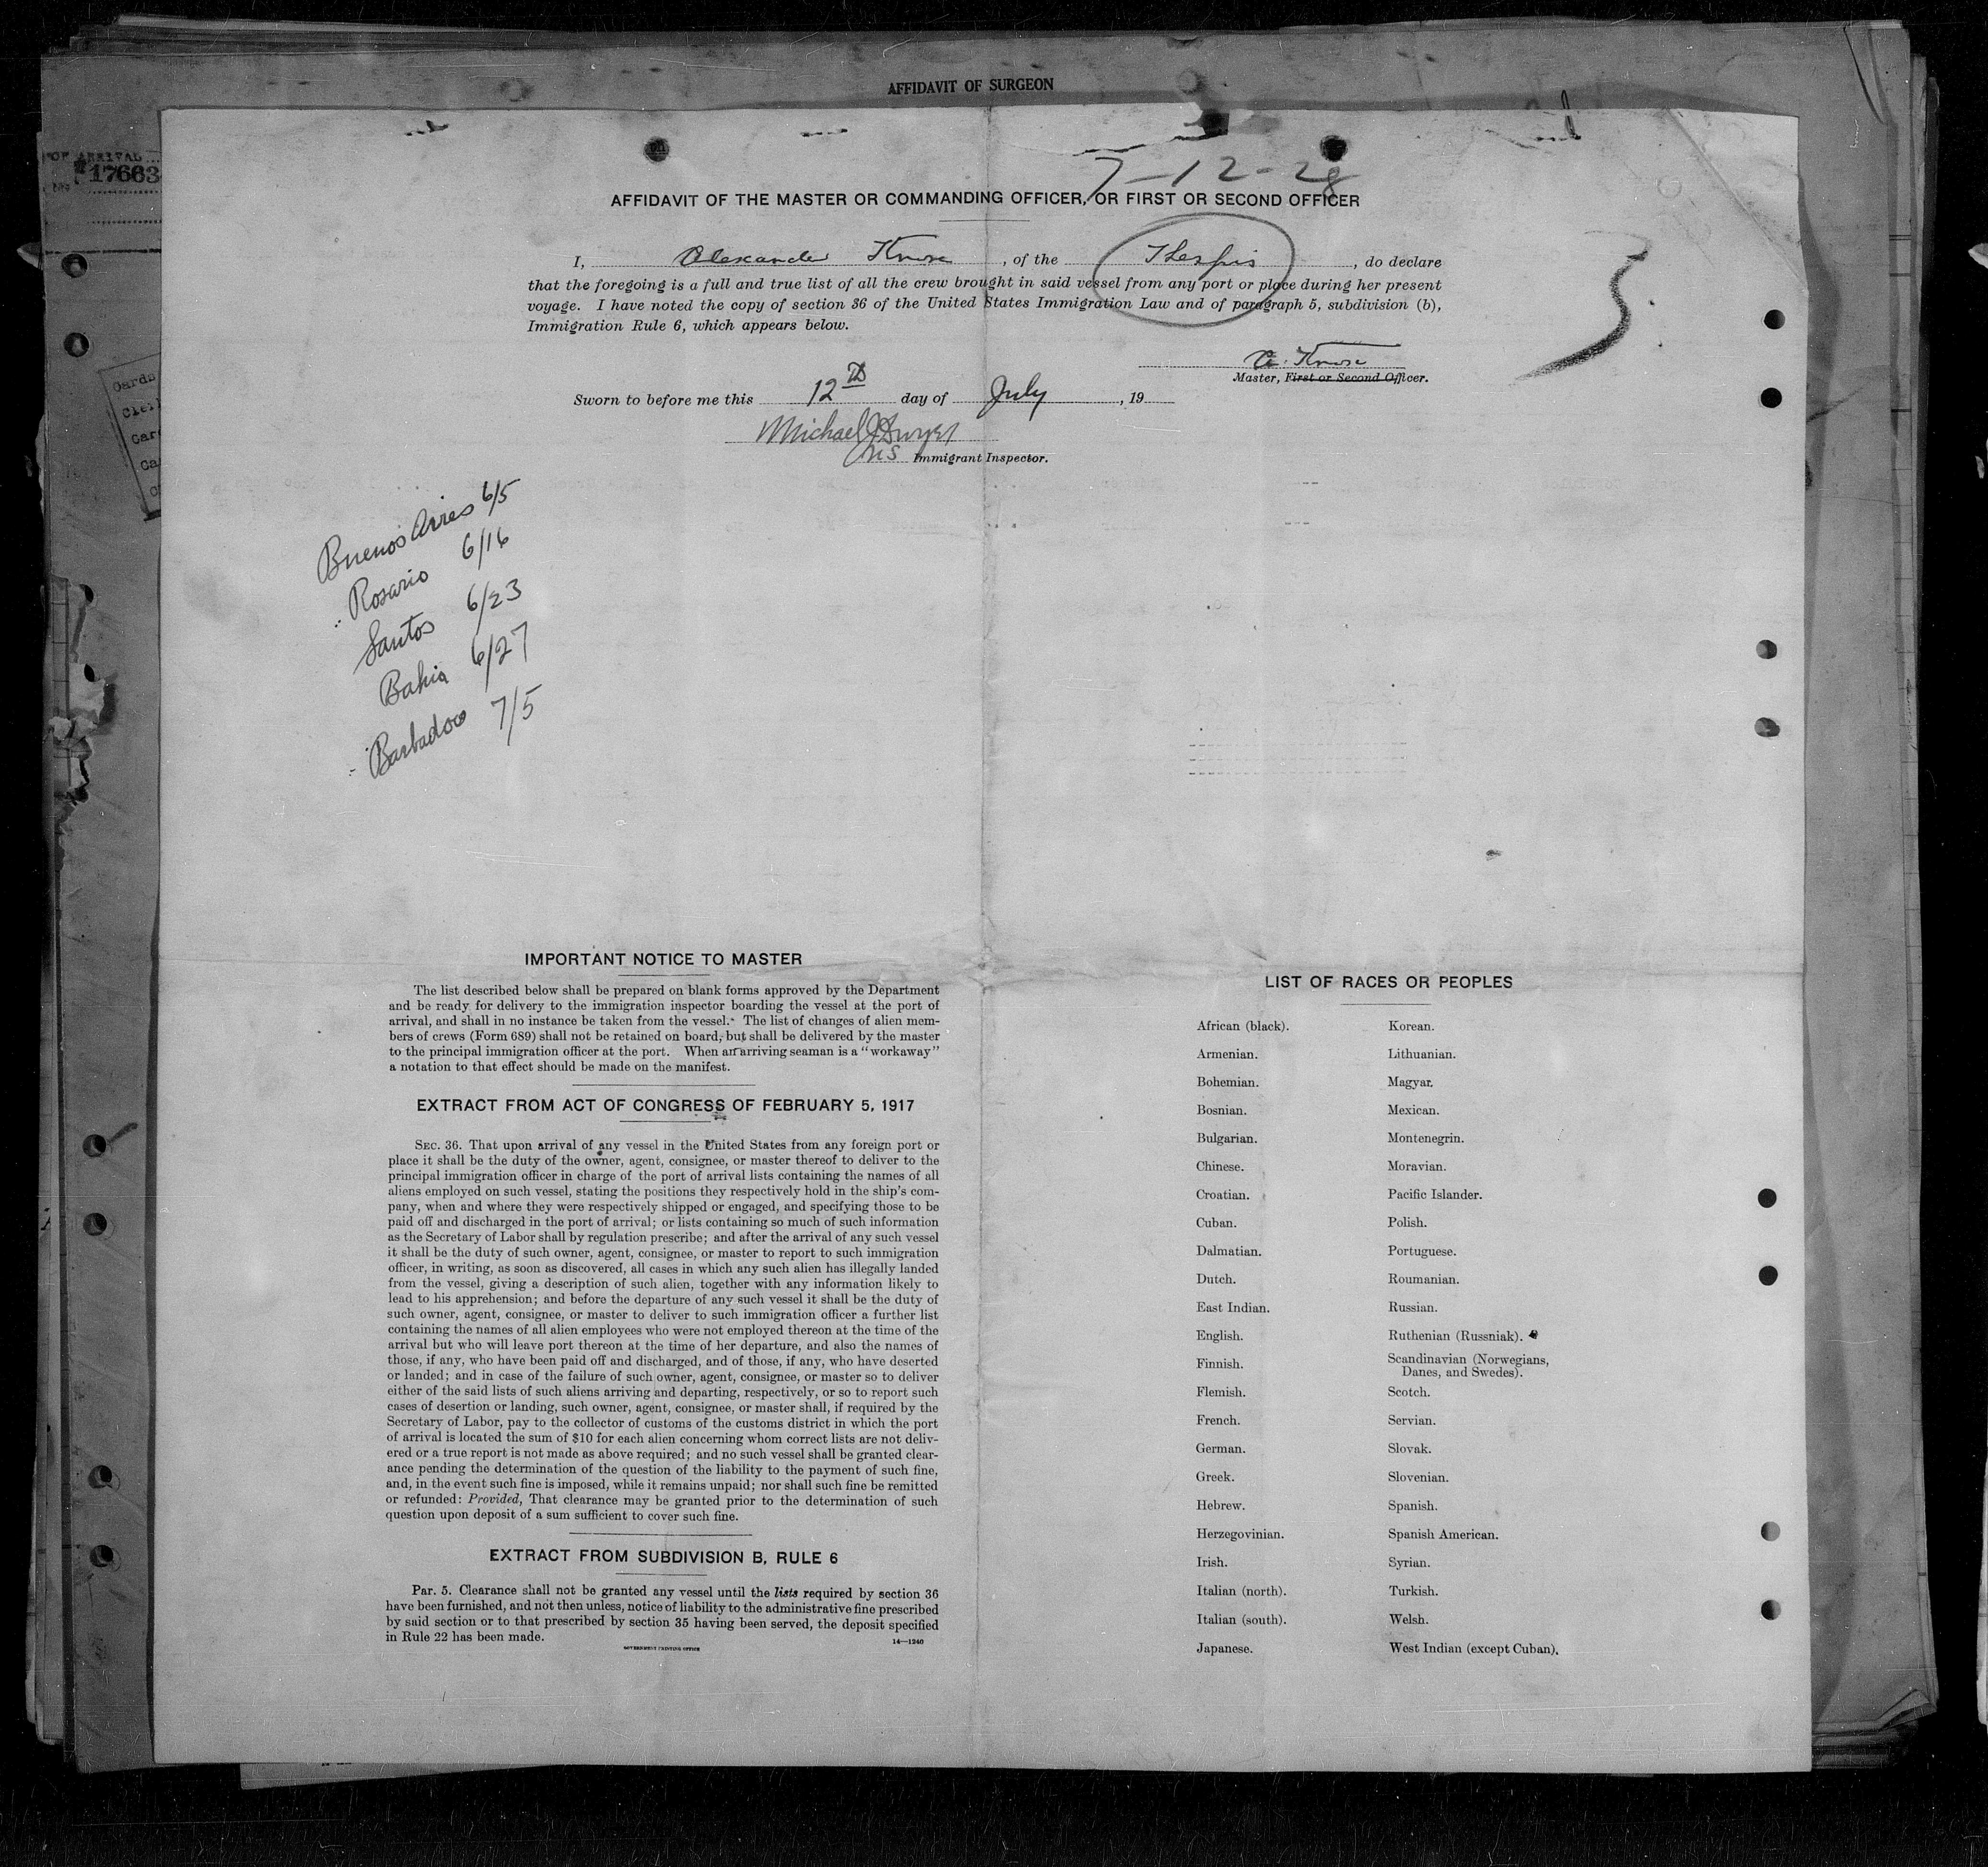 AFFIDAVIT OF SURGEON
OF ARRIVAL
No. 17663
7-12-28
AFFIDAVIT OF THE MASTER OR COMMANDING OFFICER, OR FIRST OR SECOND OFFICER
I, Alexander , of the Thespis , do declare
that the foregoing is a full and true list of all the crew brought in said vessel from any port or place during her present
voyage. I have noted the copy of section 36 of the United States Immigration Law and of paragraph 5, subdivision (b),
Immigration Rule 6, which appears below.
5
A.
Master, First or Second Officer.
Sworn to before me this 12th day of July , 19
Michael J Dwyer
Ins Immigrant Inspector.
Cards
Buenos Aires 6/5
Rosario 6/16
Santos 6/23
Bahia 6/27
Barbados 7/5
IMPORTANT NOTICE TO MASTER
The list described below shall be prepared on blank forms approved by the Department
and be ready for delivery to the immigration inspector boarding the vessel at the port of
arrival, and shall in no instance be taken from the vessel. The list of changes of alien mem-
bers of crews (Form 689) shall not be retained on board, but shall be delivered by the master
to the principal immigration officer at the port. When an arriving seaman is a "workaway"
a notation to that effect should be made on the manifest.
EXTRACT FROM ACT OF CONGRESS OF FEBRUARY 5, 1917
SEC. 36. That upon arrival of any vessel in the United States from any foreign port or
place it shall be the duty of the owner, agent, consignee, or master thereof to deliver to the
principal immigration officer in charge of the port of arrival lists containing the names of all
aliens employed on such vessel, stating the positions they respectively hold in the ship's com-
pany, when and where they were respectively shipped or engaged, and specifying those to be
paid off and discharged in the port of arrival; or lists containing so much of such information
as the Secretary of Labor shall by regulation prescribe; and after the arrival of any such vessel
it shall be the duty of such owner, agent, consignee, or master to report to such immigration
officer, in writing, as soon as discovered, all cases in which any such alien has illegally landed
from the vessel, giving a description of such alien, together with any information likely to
lead to his apprehension; and before the departure of any such vessel it shall be the duty of
such owner, agent, consignee, or master to deliver to such immigration officer a further list
containing the names of all alien employees who were not employed thereon at the time of the
arrival but who will leave port thereon at the time of her departure, and also the names of
those, if any, who have been paid off and discharged, and of those, if any, who have deserted
or landed; and in case of the failure of such owner, agent, consignee, or master so to deliver
either of the said lists of such aliens arriving and departing, respectively, or so to report such
cases of desertion or landing, such owner, agent, consignee, or master shall, if required by the
Secretary of Labor, pay to the collector of customs of the customs district in which the port
of arrival is located the sum of $10 for each alien concerning whom correct lists are not deliv-
ered or a true report is not made as above required; and no such vessel shall be granted clear-
ance pending the determination of the question of the liability to the payment of such fine,
and, in the event such fine is imposed, while it remains unpaid; nor shall such fine be remitted
or refunded: Provided, That clearance may be granted prior to the determination of such
question upon deposit of a sum sufficient to cover such fine.
EXTRACT FROM SUBDIVISION B, RULE 6
Par. 5. Clearance shall not be granted any vessel until the lists required by section 36
have been furnished, and not then unless, notice of liability to the administrative fine prescribed
by said section or to that prescribed by section 35 having been served, the deposit specified
in Rule 22 has been made.
GOVERNMENT PRINTING OFFICE
14—1240
LIST OF RACES OR PEOPLES
African (black).
Armenian.
Bohemian.
Bosnian.
Bulgarian.
Chinese.
Croatian.
Cuban.
Dalmatian.
Dutch.
East Indian.
English.
Finnish.
Flemish.
French.
German.
Greek.
Hebrew.
Herzegovinian.
Irish.
Italian (north).
Italian (south).
Japanese.
Korean.
Lithuanian.
Magyar.
Mexican.
Montenegrin.
Moravian.
Pacific Islander.
Polish.
Portuguese.
Roumanian.
Russian.
Ruthenian (Russniak).
Scandinavian (Norwegians,
Danes, and Swedes).
Scotch.
Servian.
Slovak.
Slovenian.
Spanish.
Spanish American.
Syrian.
Turkish.
Welsh.
West Indian (except Cuban).